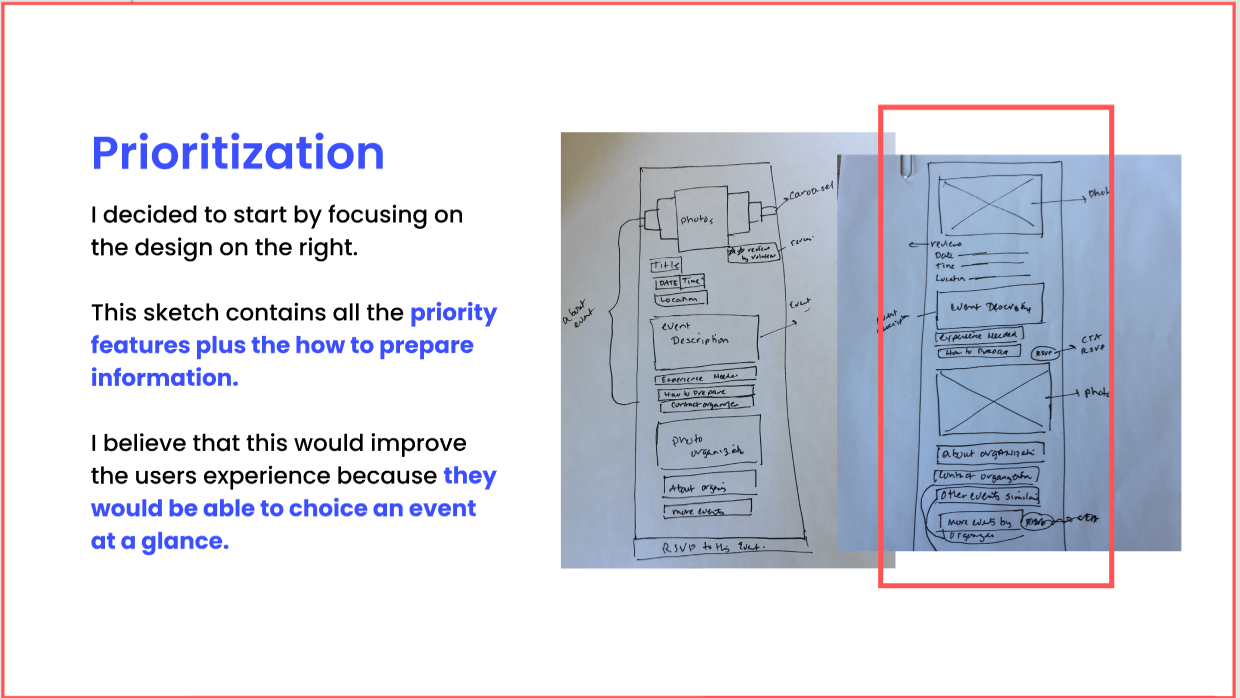 Prioritization
I decided to start by focusing on
the design on the right.
This sketch contains all the priority
features plus the how to prepare
information.
I believe that this would improve
the users experience because they
would be able to choice an event
at a glance.
Carousel
photos
review
by volunteer
Title
DATE Time
Location
about
event
Event
event
Description
Experience Needed
How to Prepare
Contact organizer
photo
About
more events
RSVP to this Event.
reviews
Date
Time
Location
Event
Experience Needed
How to Prepare
RSVP
CTA
RSVP
about
Contact
Other events similar
more events by
organizer